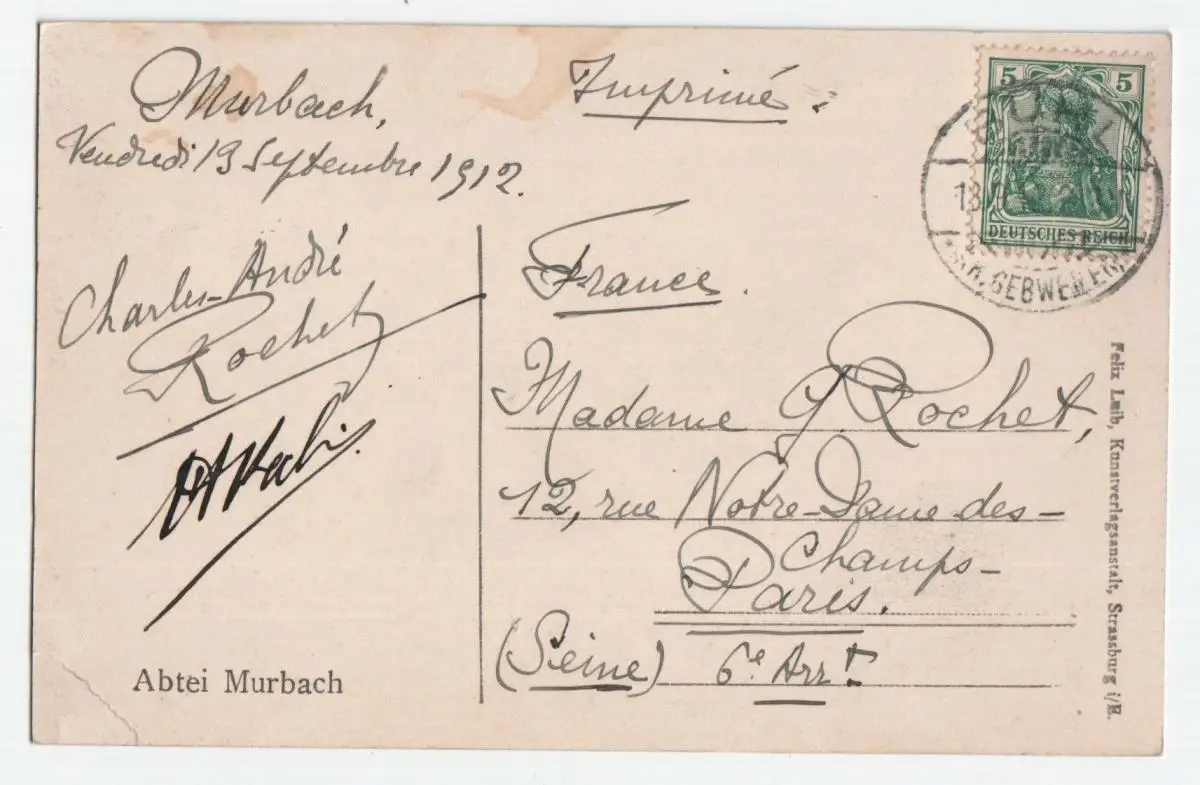 Murbach,
Vendredi 13 Septembre 1912.
Charles-André
Rochet
Abtei Murbach
Imprimé.
France.
Madame G. Rochet,
12, rue Notre-Dame-des-
Champs-
Paris.
(Seine) 6e Arrt
5 5
DEUTSCHES REICH
GEBWEILER
Felix Luib, Kunstverlagsanstalt, Strassburg i/E.